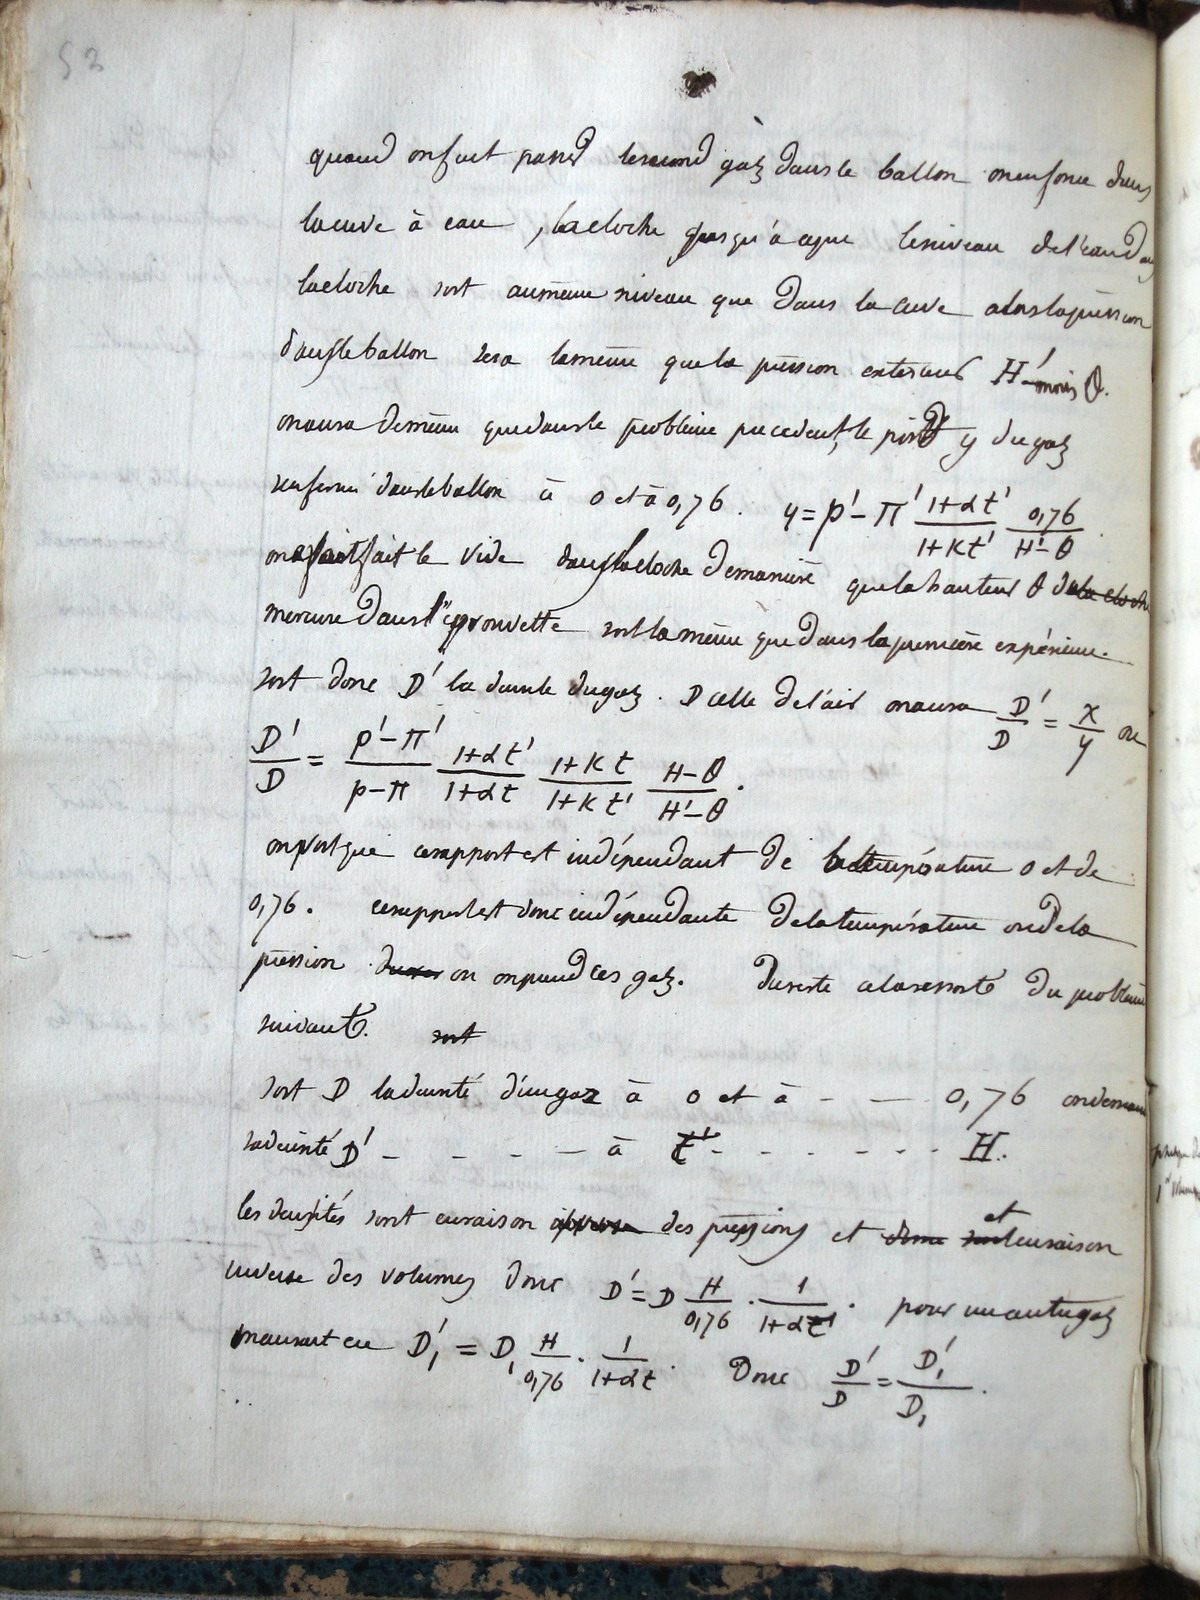 52
quand on fait passer le second gaz dans le ballon on enfonce dans
la cuve à eau, la cloche jusqu'à ce que le niveau de l'eau dans
la cloche soit au même niveau que dans la cuve alors la pression
dans le ballon sera la même que la pression exterieure H' moins θ.
on aura de même que dans le problème precedent, le poids y du gaz
renfermé dans le ballon à 0 et à 0,76. y = p' - π' (1+αt')/(1+Kt') 0,76/(H'-θ)
on fait le vide dans la cloche de manière que la hauteur θ de la cloche
mercure dans l'éprouvette soit la même que dans la première expérience.
soit donc D' la densité du gaz. D celle de l'air on aura D'/D = x/y ou
D'/D = (p'-π')/(p-π) (1+αt')/(1+αt) (1+Kt)/(1+Kt') (H-θ)/(H'-θ).
on voit que ce rapport est indépendant de la température 0 et de
0,76. ce rapport est donc indépendante de la température ou de la
pression où on prend ces gaz. Du reste cela ressort du problème
suivant. soit
soit D la densité d'un gaz à 0 et à - - 0,76 on demande
sa densité D' - - - - à t' - - - - - - H.
les densités sont en raison des pressions et et en raison
inverse des volumes donc D' = D H/0,76 . 1/(1+αt'). pour un autre gaz
on aurait eu D'₁ = D₁ H/0,76 . 1/(1+αt). Donc D'/D = D'₁/D₁.